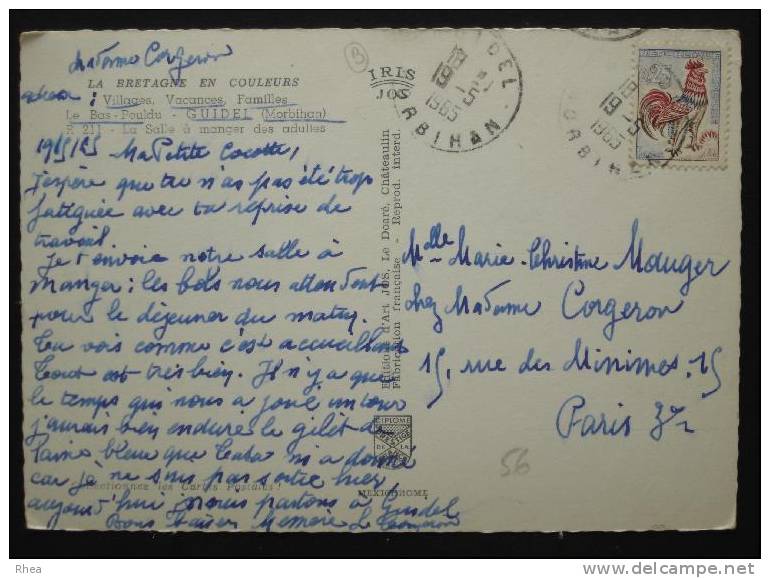 Madame Corgeron
LA BRETAGNE EN COULEURS
Villages, Vacances, Familles
Le Bas-Pouldu - GUIDEL (Morbihan)
R 211 - La Salle à manger des adultes
Ma Petite Cocotte,
J'espère que tu n'as pas été trop
fatiguée avec ta reprise de
travail.
Je t'envoie notre salle à
manger : les bols nous attendent
pour le déjeuner du matin.
Tu vois comme c'est accueillant
Tout est très bien. Il n'y a que
le temps qui nous a joué un tour
j'aurais bien enduré le gilet de
laine bleue que m'a donné
car je ne suis pas sortie hier
aujourd'hui nous partons à Guidel
Bons Baisers Mémère Corgeron
Sélectionnez les Cartes Postales !
IRIS
JOS
Editions d'Art JOS, Le Doaré, Châteaulin
Fabrication française - Reprod. interd.
DIPLOME
PRESTIGE
DE LA
FRANCE
MEXICHROME
GUIDEL
19H
1965
MORBIHAN
19H
1965
MORBIHAN
Mlle Marie-Christine Mauger
chez Madame Corgeron
15, rue des Minimes, 15
Paris 3e
56
B
Rhea
www.delcampe.net